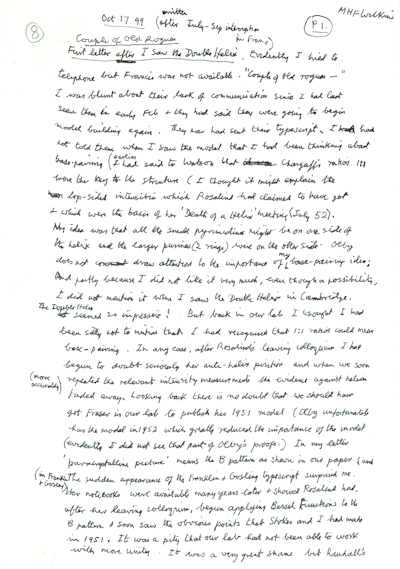 8
Oct 17 99 written after July-Sep interruption in France
P1.
MHF Wilkins
Couple of Old Rogues
First letter after I saw the Double Helix. Evidently I tried to
telephone but Francis was not available. "Couple of old rogues —"
I was blunt about their lack of communication since I had last
seen them in early Feb & they had said they were going to begin
model building again. They now had sent their typescript. I had
not told them when I saw the model that I had been thinking about
base-pairing (I had said to Watson earlier that Chargaff's ratios 1:1
were the key to the structure (I thought it might explain the
lop-sided intensities which Rosalind had claimed to have got
& which were the basis of her 'Death of a Helix' meeting (July 52).
My idea was that all the small pyrimidines might be on one side of
the helix and the larger purines (2 rings) were on the other side. Olby
does not draw attention to the importance of my base-pairing idea;
And partly because I did not like it very much, even though a possibility,
I did not mention it when I saw the Double Helix in Cambridge.
The Double Helix seemed so impressive! But back in our lab I thought I had
been silly not to mention that I had recognised that 1:1 ratios could mean
base-pairing. In any case, after Rosalind's leaving colloquium I had
begun to doubt seriously her anti-helix position and when we soon
repeated (more accurately) the relevant intensity measurements the evidence against helices
faded away. Looking back there is no doubt that we should have
got Fraser in our lab to publish his 1951 model (Olby unfortunately
has the model in 1952 which greatly reduced the importance of the model
(evidently I did not see that part of Olby's proofs.) In my letter
'paracrystalline picture' means the B pattern as shown in our paper (and
in Franklin & Gosling). The sudden appearance of the Franklin & Gosling typescript surprised me.
Her notebooks were available many years later & showed Rosalind had,
after her leaving colloquium, begun applying Bessel Functions to the
B pattern & soon saw the obvious points that Stokes and I had made
in 1951. It was a pity that our lab had not been able to work
with more unity. It was a very great shame but Randall's